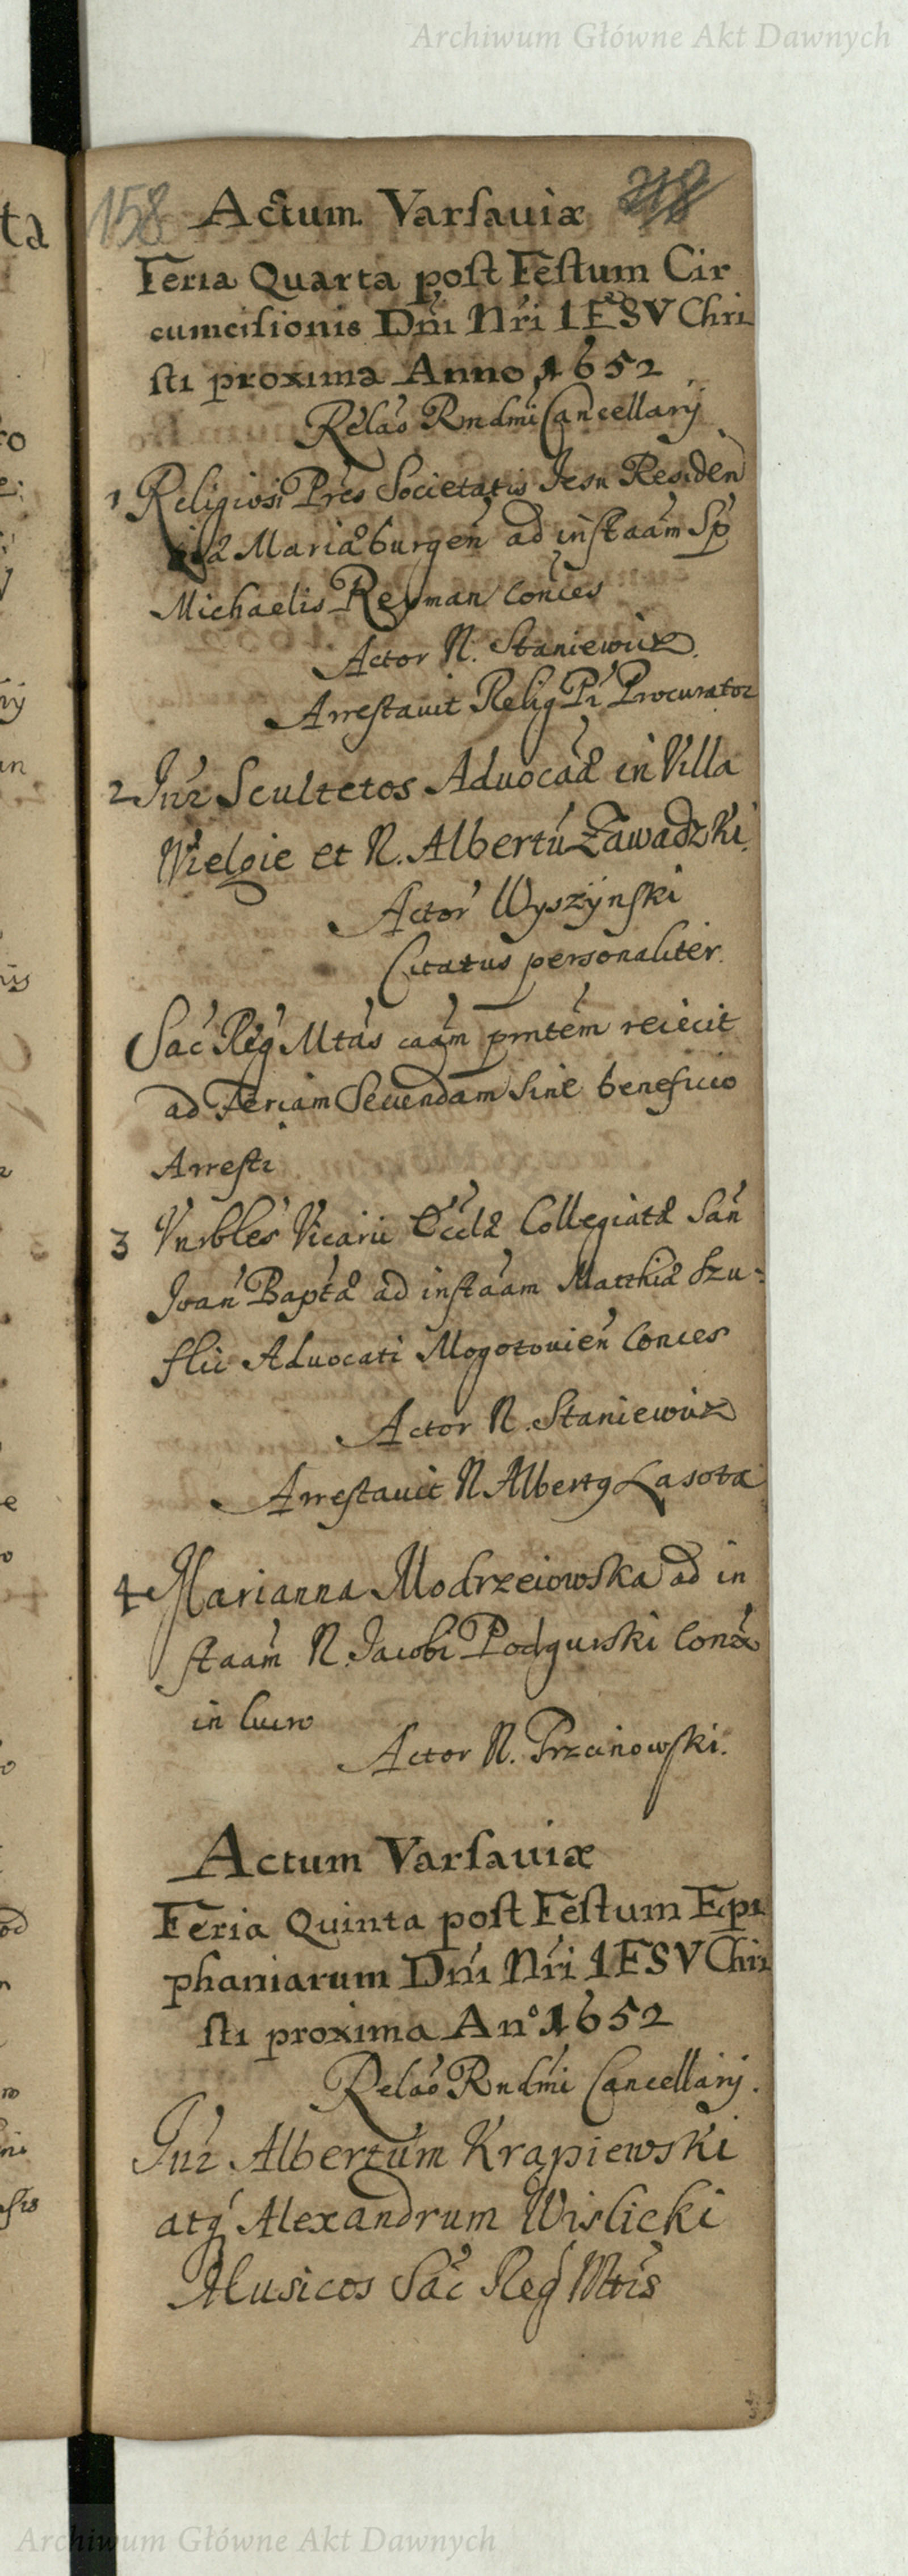 Archiwum Główne Akt Dawnych
158 Actum Varsauiæ 218
Feria Quarta post Festum Cir
cumcisionis Dnı Nri IESV Chri
sti proxima Anno 1652
Relao Rndmi Cancellarij
1 Religiosi Pres Societatis Iesu Residen
Mariæburgen ad instaam Sp
Michaelis Reyman Conces
Actor N. Staniewicz
Arrestauit Relig Pr Procurator
2 Intr Scultetos Aduocatæ in Villa
Wielgie et N. Albertu Zawadzki
Actor Wyszÿnski
Citatus personaliter
Sac Reg Mtas caam pntem reiecit
ad Feriam Secundam sine beneficio
Arresti
3 Vnrbles Vicarii Eccle Collegiatæ San
Ioan Baptæ ad instaam Matthiæ Szu-
slic Aduocati Mogotouien Conces
Actor N. Staniewicz
Arrestauit N Albertq Lasota
4 Marianna Modrzeiowska ad in
staam N. Iacobi Podgurski
in lucro
Actor N. Przcinowski.
Actum Varsauiæ
Feria Quinta post Festum Epi
phaniarum Dnı Nri IESV Chri
sti proxima An° 1652
Relao Rndmi Cancellarij.
Intr Albertum Krapiewski
atq Alexandrum Wislicki
Musicos Sac Reg Mtis
Archiwum Główne Akt Dawnych